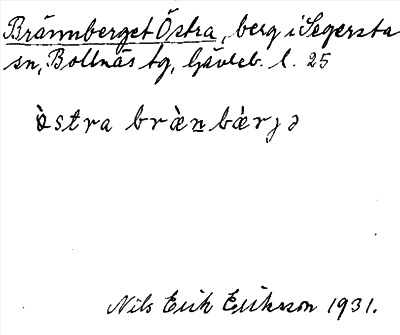 Brännberget Östra, berg i Segersta
sn, Bollnäs tg, Gävleb. l. 25
ὰstra brὲn bǽrjə
Nils Erik Eriksson 1931.